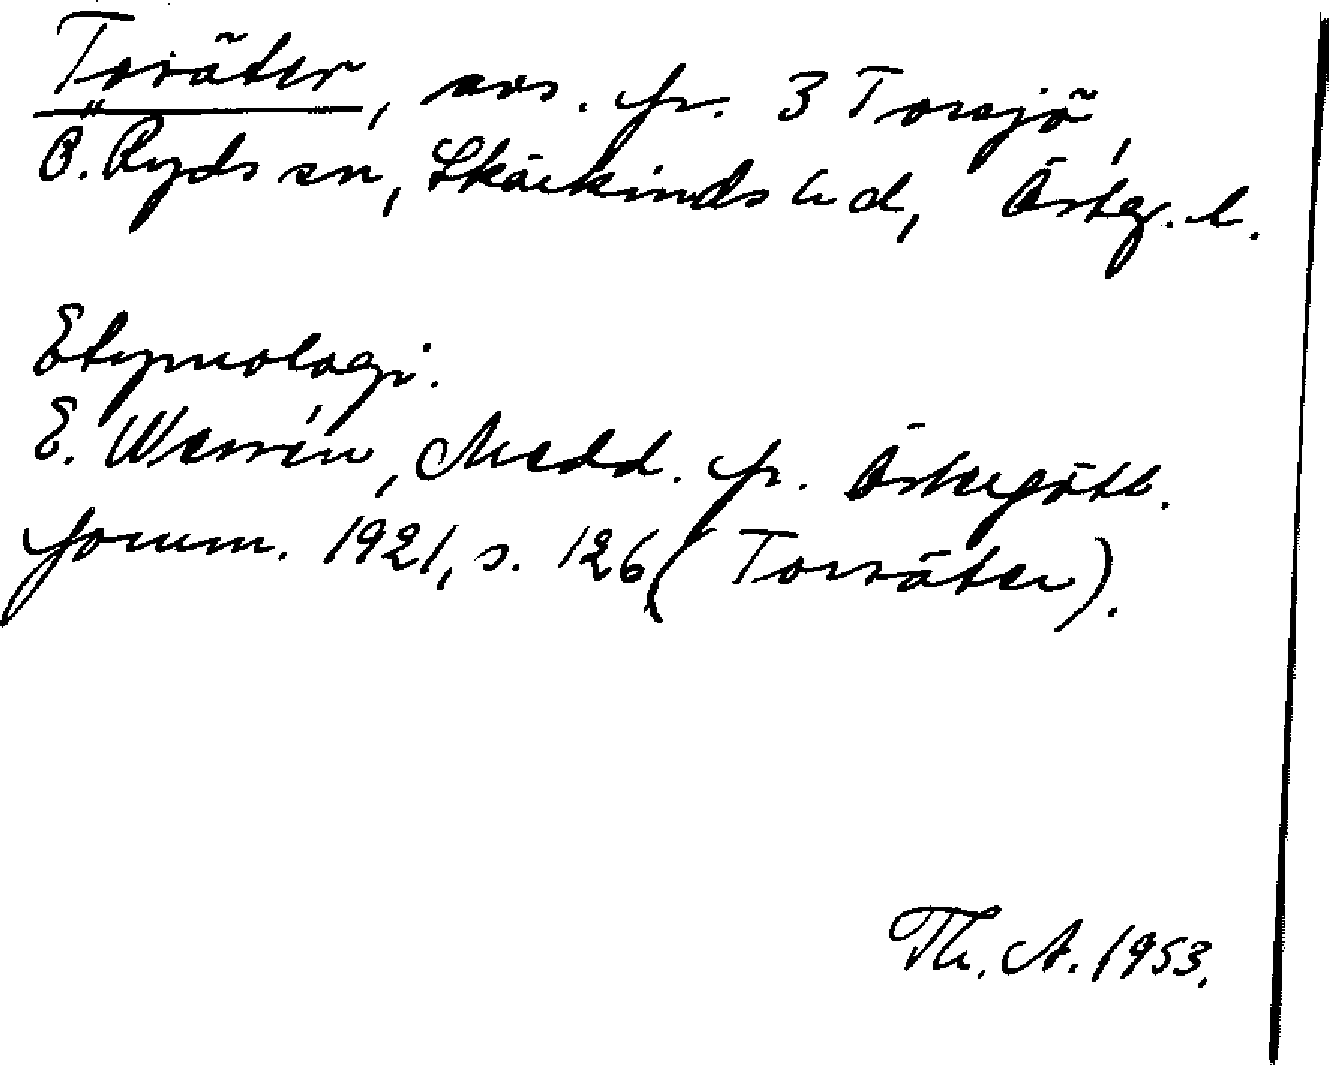 Torräter, avs. fr. 3 Torsjö,
Ö. Ryds sn, Skärkinds hd, Östg. l.
Etymologi:
E. Wessén, Medd. fr. Östergötl.
fornm. 1921, s. 126 (Torräter).
Th. A. 1953.